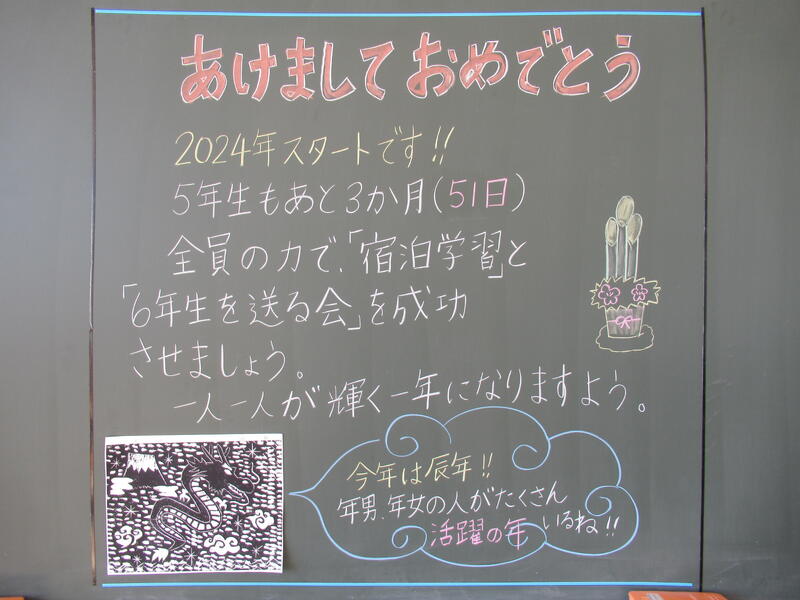 あけましておめでとう
2024年スタートです!!
5年生もあと3か月(51日)
全員の力で、「宿泊学習」と
「6年生を送る会」を成功
させましょう。
一人一人が輝く一年になりますよう。
今年は辰年!!
年男、年女の人がたくさん
いるね!!
活躍の年